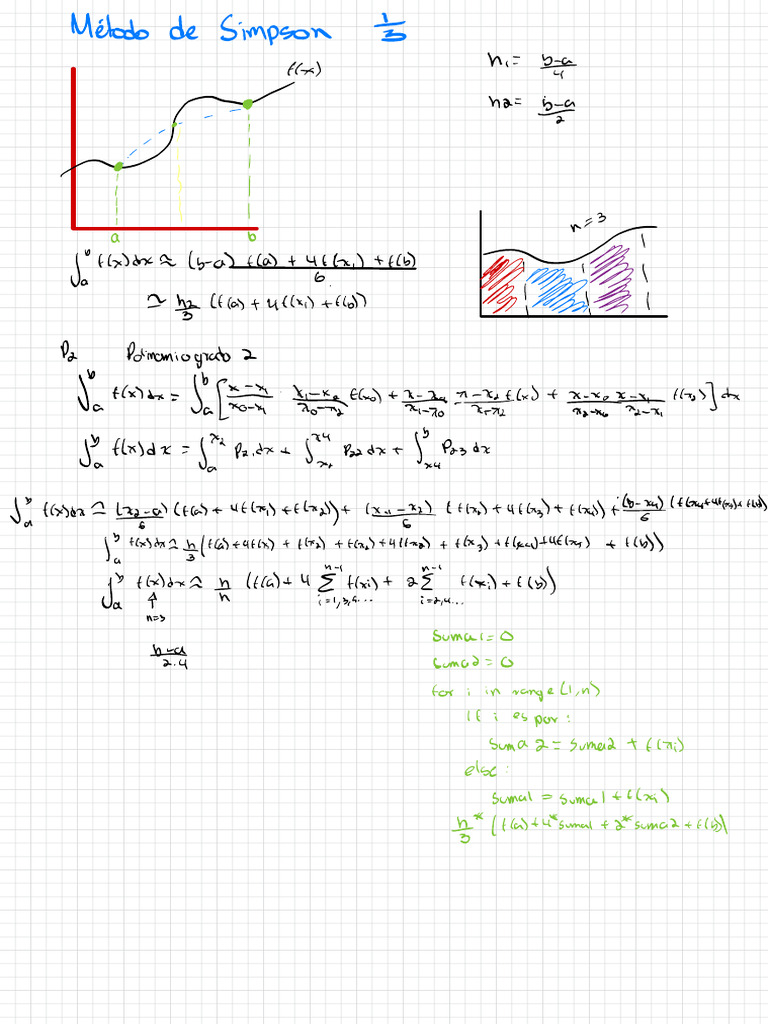 Método de Simpson 1/3
f(x)
h1 = (b-a)/4
h2 = (b-a)/2
a b
n=3
∫_a^b f(x)dx ≈ (b-a) (f(a) + 4f(x1) + f(b))/6
≈ h2/3 (f(a) + 4f(x1) + f(b))
P2 Polinomio grado 2
∫_a^b f(x)dx = ∫_a^b [(x-x1)/(x0-x1) · f(x0) + f(x1) + (x-x0)/(x2-x0) (x-x1)/(x2-x1) f(x2)] dx
∫_a^b f(x)dx = ∫_a^x2 P2,dx + ∫_x2^x4 P22 dx + ∫_x4^b P23 dx
∫_a^b f(x)dx ≈ (x2-a)/6 (f(a) + 4f(x1) + f(x2)) + (x4-x2)/6 (f(x2) + 4f(x3) + f(x4)) + (b-x4)/6
∫_a^b f(x)dx ≈ h/3 (f(a)+4f(x1) + f(x2) + f(x2) + + f(b))
∫_a^b f(x)dx ≈ h/h (f(a) + 4 ∑_{i=1,3,5...}^{n-1} f(xi) + 2 ∑_{i=2,4...}^{n-1} f(xi) + f(b))
n=3
(b-a)/(2·4)
suma1=0
suma2=0
for i in range(1,n)
If i es par:
suma2 = suma2 + f(xi)
else:
suma1 = suma1 + f(xi)
h/3 * (f(a) + 4*suma1 + 2*suma2 + f(b))